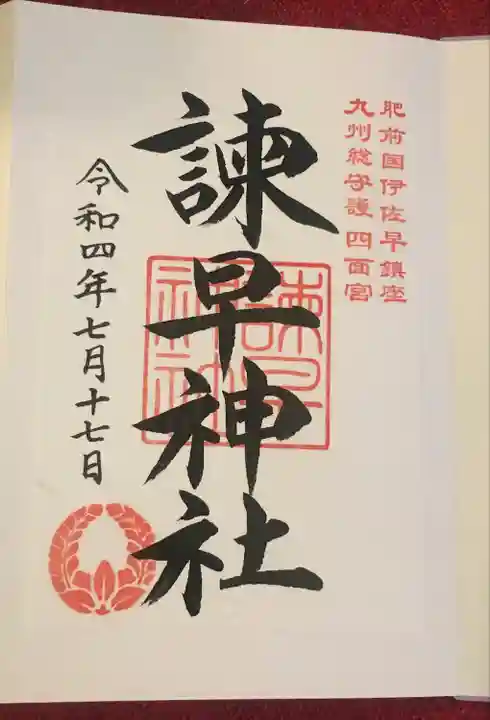 肥前国伊佐早鎮座
九州総守護四面宮
諫早神社
諫早神社
令和四年七月十七日